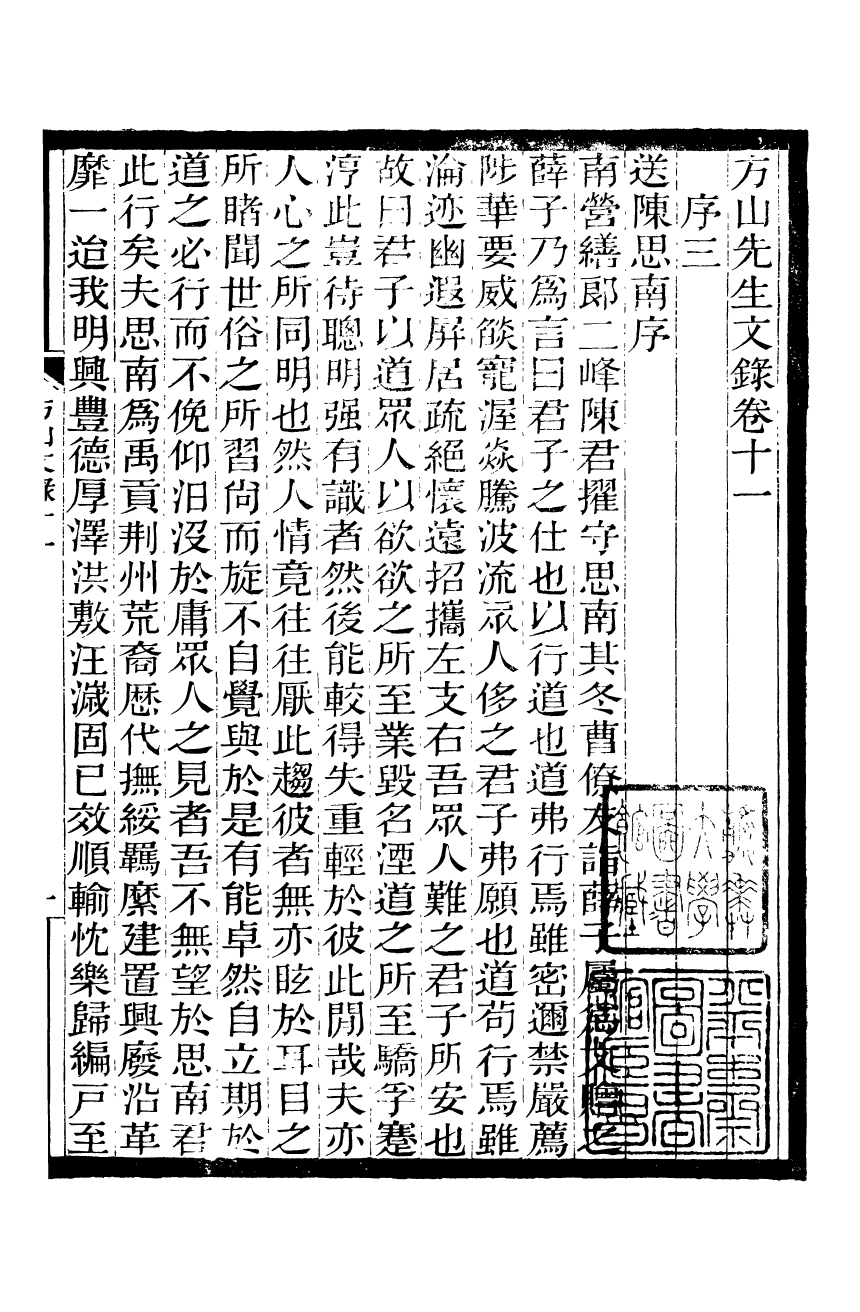 方山先生文錄卷十一
序三
送陳思南序
南營繕郎二峰陳君擢守思南其冬曹僚友詣薛子屬為文贈之
薛子乃爲言曰君子之仕也以行道也道弗行焉雖密邇禁嚴薦
陟華要威燄寵渥焱騰波流眾人侈之君子弗願也道苟行焉雖
淪迹幽遐屏居疏絕懷遠招攜左支右吾眾人難之君子所安也
故曰君子以道眾人以欲欲之所至業毀名湮道之所至驕孚蹇
渟此豈待聰明强有識者然後能較得失重輕於彼此閒哉夫亦
人心之所同明也然人情竟往往厭此趨彼者無亦眩於耳目之
所睹聞世俗之所習尙而旋不自覺與於是有能卓然自立期於
道之必行而不俛仰汨沒於庸眾人之見者吾不無望於思南君
此行矣夫思南爲禹貢荆州荒裔歴代撫綏羈縻建置興廢沿革
靡一迨我明興豐德厚澤洪敷汪濊固已效順輸忱樂歸編戸至
方山文錄十一
一